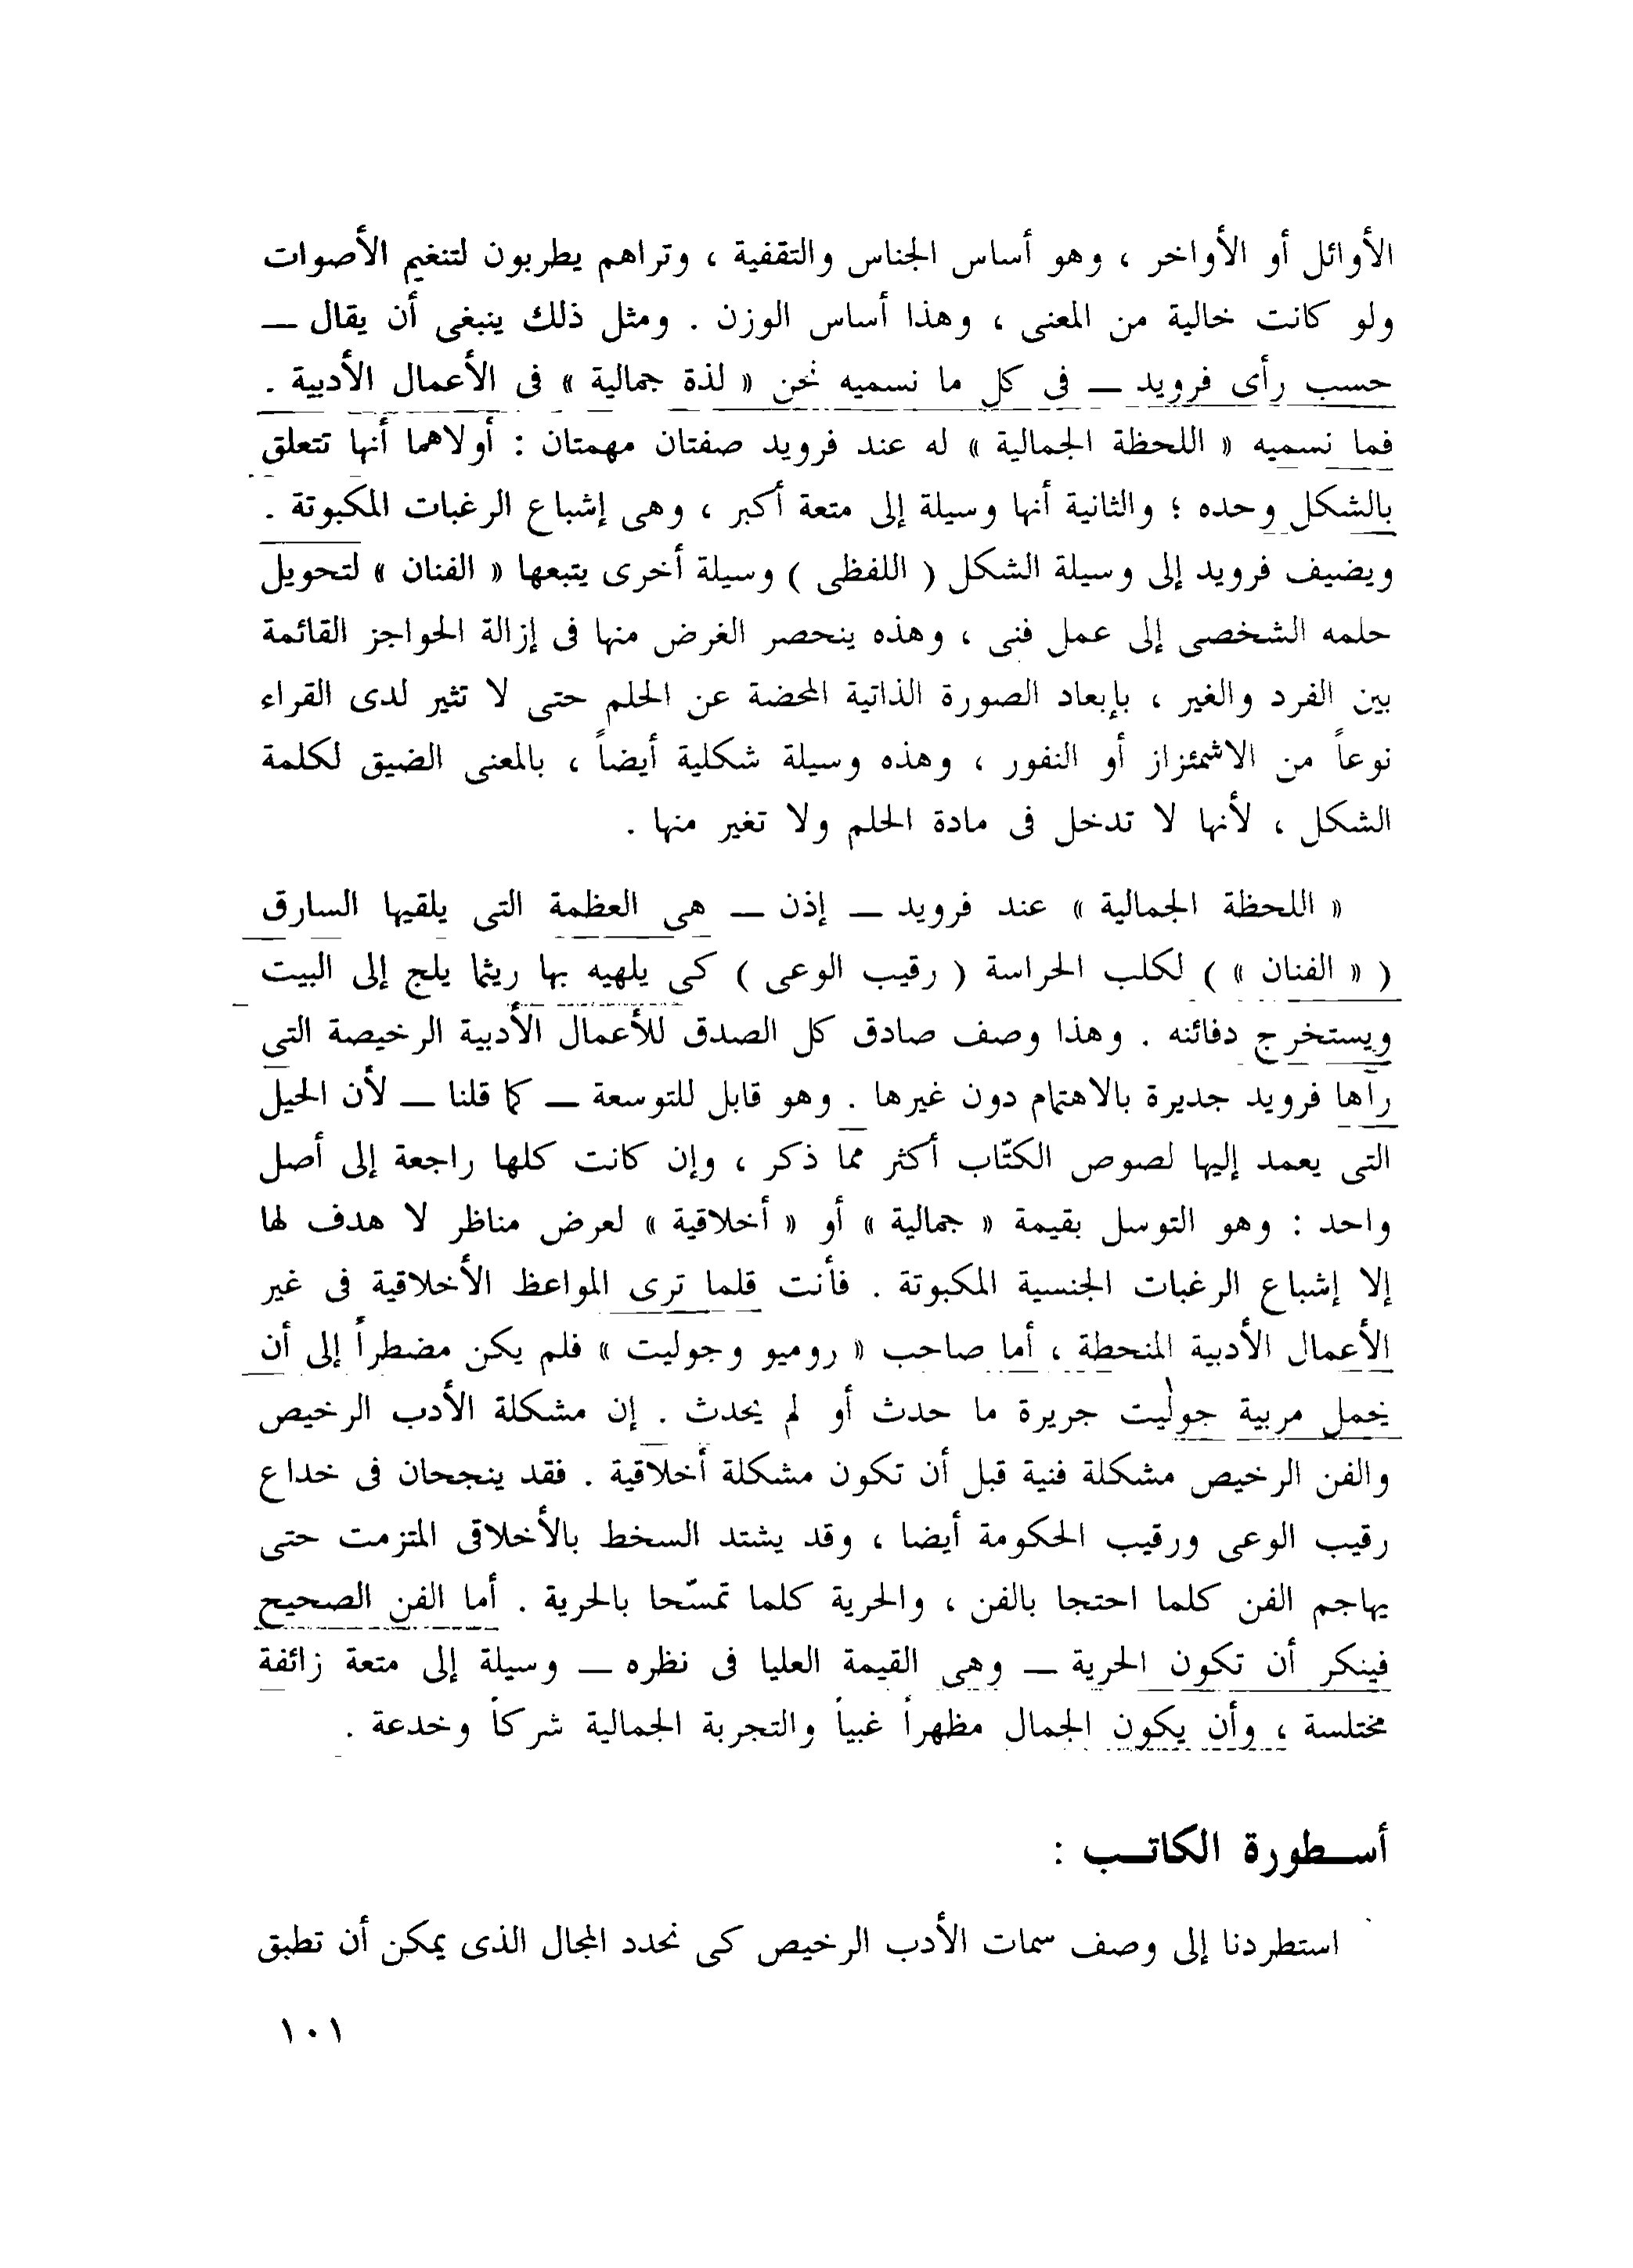 الأوائل أو الأواخر ، وهو أساس الجناس والتقفية ، وتراهم يطربون لتنغيم الأصوات
ولو كانت خالية من المعنى ، وهذا أساس الوزن . ومثل ذلك ينبغى أن يقال —
حسب رأى فرويد — فى كل ما نسميه نحن « لذة جمالية » فى الأعمال الأدبية .
فما نسميه « اللحظة الجمالية » له عند فرويد صفتان مهمتان : أولاهما أنها تتعلق
بالشكل وحده ؛ والثانية أنها وسيلة إلى متعة أكبر ، وهى إشباع الرغبات المكبوتة .
ويضيف فرويد إلى وسيلة الشكل ( اللفظى ) وسيلة أخرى يتبعها « الفنان » لتحويل
حلمه الشخصى إلى عمل فنى ، وهذه ينحصر الغرض منها فى إزالة الحواجز القائمة
بين الفرد والغير ، بإبعاد الصورة الذاتية المحضة عن الحلم حتى لا تثير لدى القراء
نوعاً من الاشمئزاز أو النفور ، وهذه وسيلة شكلية أيضاً ، بالمعنى الضيق لكلمة
الشكل ، لأنها لا تدخل فى مادة الحلم ولا تغير منها .
« اللحظة الجمالية » عند فرويد — إذن — هى العظمة التى يلقيها السارق
( « الفنان » ) لكلب الحراسة ( رقيب الوعى ) كى يلهيه بها ريثما يلج إلى البيت
ويستخرج دفائنه . وهذا وصف صادق كل الصدق للأعمال الأدبية الرخيصة التى
رآها فرويد جديرة بالاهتمام دون غيرها . وهو قابل للتوسعة — كما قلنا — لأن الحيل
التى يعمد إليها لصوص الكتّاب أكثر مما ذكر ، وإن كانت كلها راجعة إلى أصل
واحد : وهو التوسل بقيمة « جمالية » أو « أخلاقية » لعرض مناظر لا هدف لها
إلا إشباع الرغبات الجنسية المكبوتة . فأنت قلما ترى المواعظ الأخلاقية فى غير
الأعمال الأدبية المنحطة ، أما صاحب « روميو وجوليت » فلم يكن مضطراً إلى أن
يحمل مربية جوليت جريرة ما حدث أو لم يحدث . إن مشكلة الأدب الرخيص
والفن الرخيص مشكلة فنية قبل أن تكون مشكلة أخلاقية . فقد ينجحان فى خداع
رقيب الوعى ورقيب الحكومة أيضا ، وقد يشتد السخط بالأخلاقى المتزمت حتى
يهاجم الفن كلما احتجا بالفن ، والحرية كلما تمسّحا بالحرية . أما الفن الصحيح
فينكر أن تكون الحرية — وهى القيمة العليا فى نظره — وسيلة إلى متعة زائفة
مختلسة ، وأن يكون الجمال مظهراً غبياً والتجربة الجمالية شركاً وخدعة .
أسطورة الكاتب :
استطردنا إلى وصف سمات الأدب الرخيص كى نحدد المجال الذى يمكن أن تطبق
١٠١